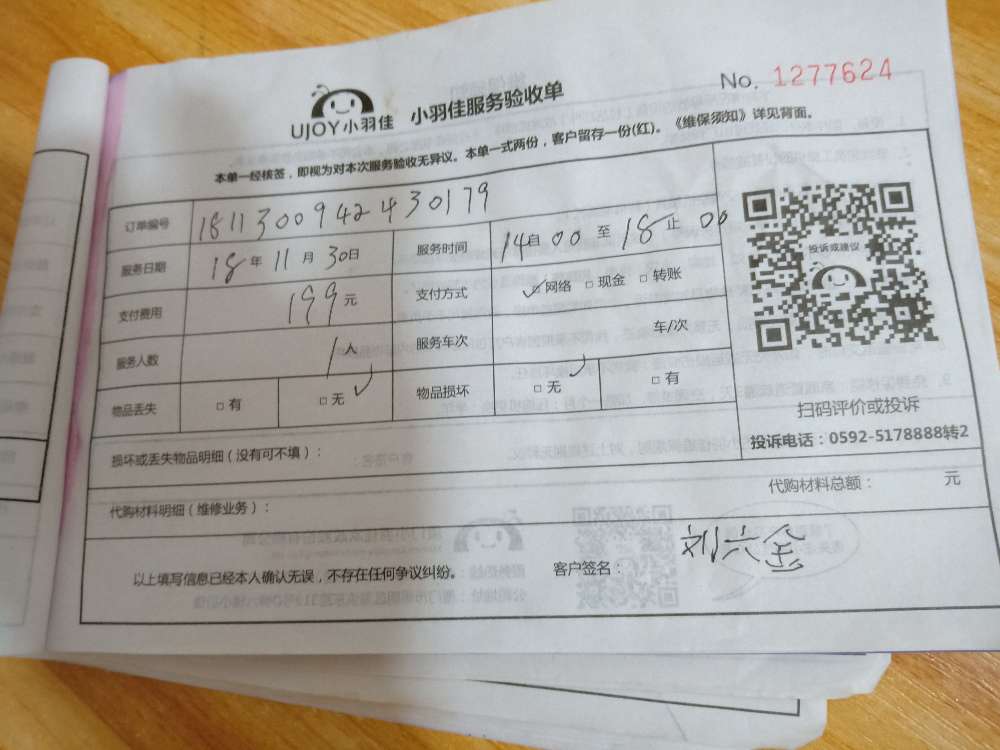 No. 1277624
UJOY小羽佳 小羽佳服务验收单
本单一经核签，即视为对本次服务验收无异议。本单一式两份，客户留存一份(红)。《维保须知》详见背面。
订单编号 1811300942430179
服务日期 18年 11月 30日 服务时间 14自 00 至 18止 00
支付费用 199元 支付方式 ✓□网络 □现金 □转账
服务人数 1人 服务车次 车/次
物品丢失 □有 □无✓ 物品损坏 □无✓ □有
投诉或建议
扫码评价或投诉
投诉电话：0592-5178888转2
损坏或丢失物品明细（没有可不填）：
代购材料明细（维修业务）： 代购材料总额： 元
以上填写信息已经本人确认无误，不存在任何争议纠纷。 客户签名： 刘六金